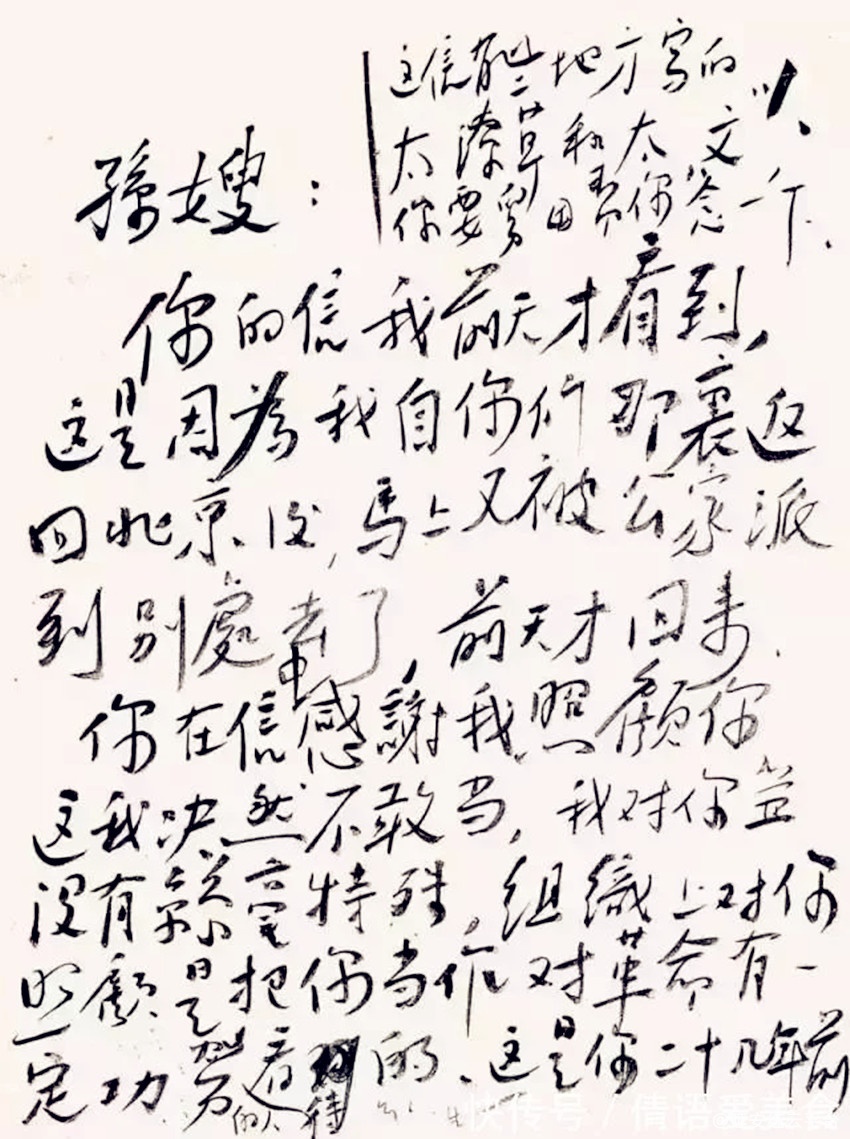 孫嫂：
这信有些地方寫的
太潦草和太文
你要舅田和你念一下.
你的信我前天才看到,
这是因為我自你们那裏返
回北京后,馬上又被公家派
到别處去了,前天才回来.
你在信中感謝我照顧你
这我决然不敢当,我对你並
没有絲毫特殊,組織上对你
照顧是把你当作对革命有一
定功劳的人看待的.这是你二十几年前
快传号/倩语爱美食